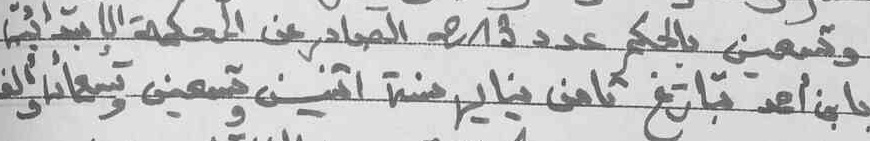 وتسعين بالحكم عدد الصادر عن المحكمة الابتدائية
بابن احمد بتاريخ ثامن يناير سنة اثنين وتسعين وتسعمائة وألف